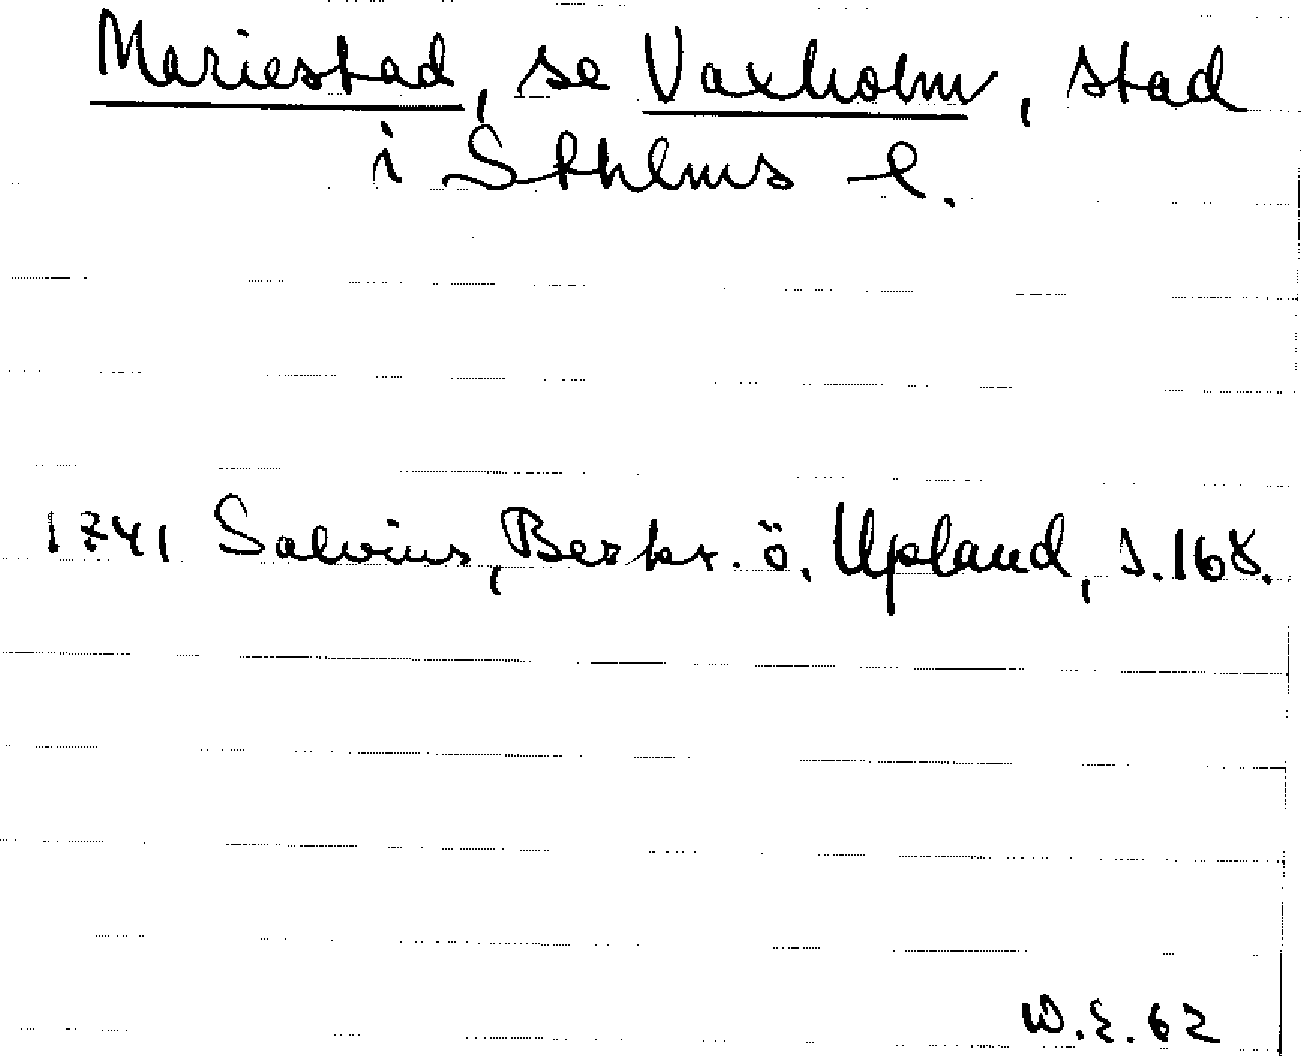 Mariestad, se Vaxholm, stad
i Sthlms l.
1741 Salvius, Beskr. ö. Upland, s. 168.
W.E. 62